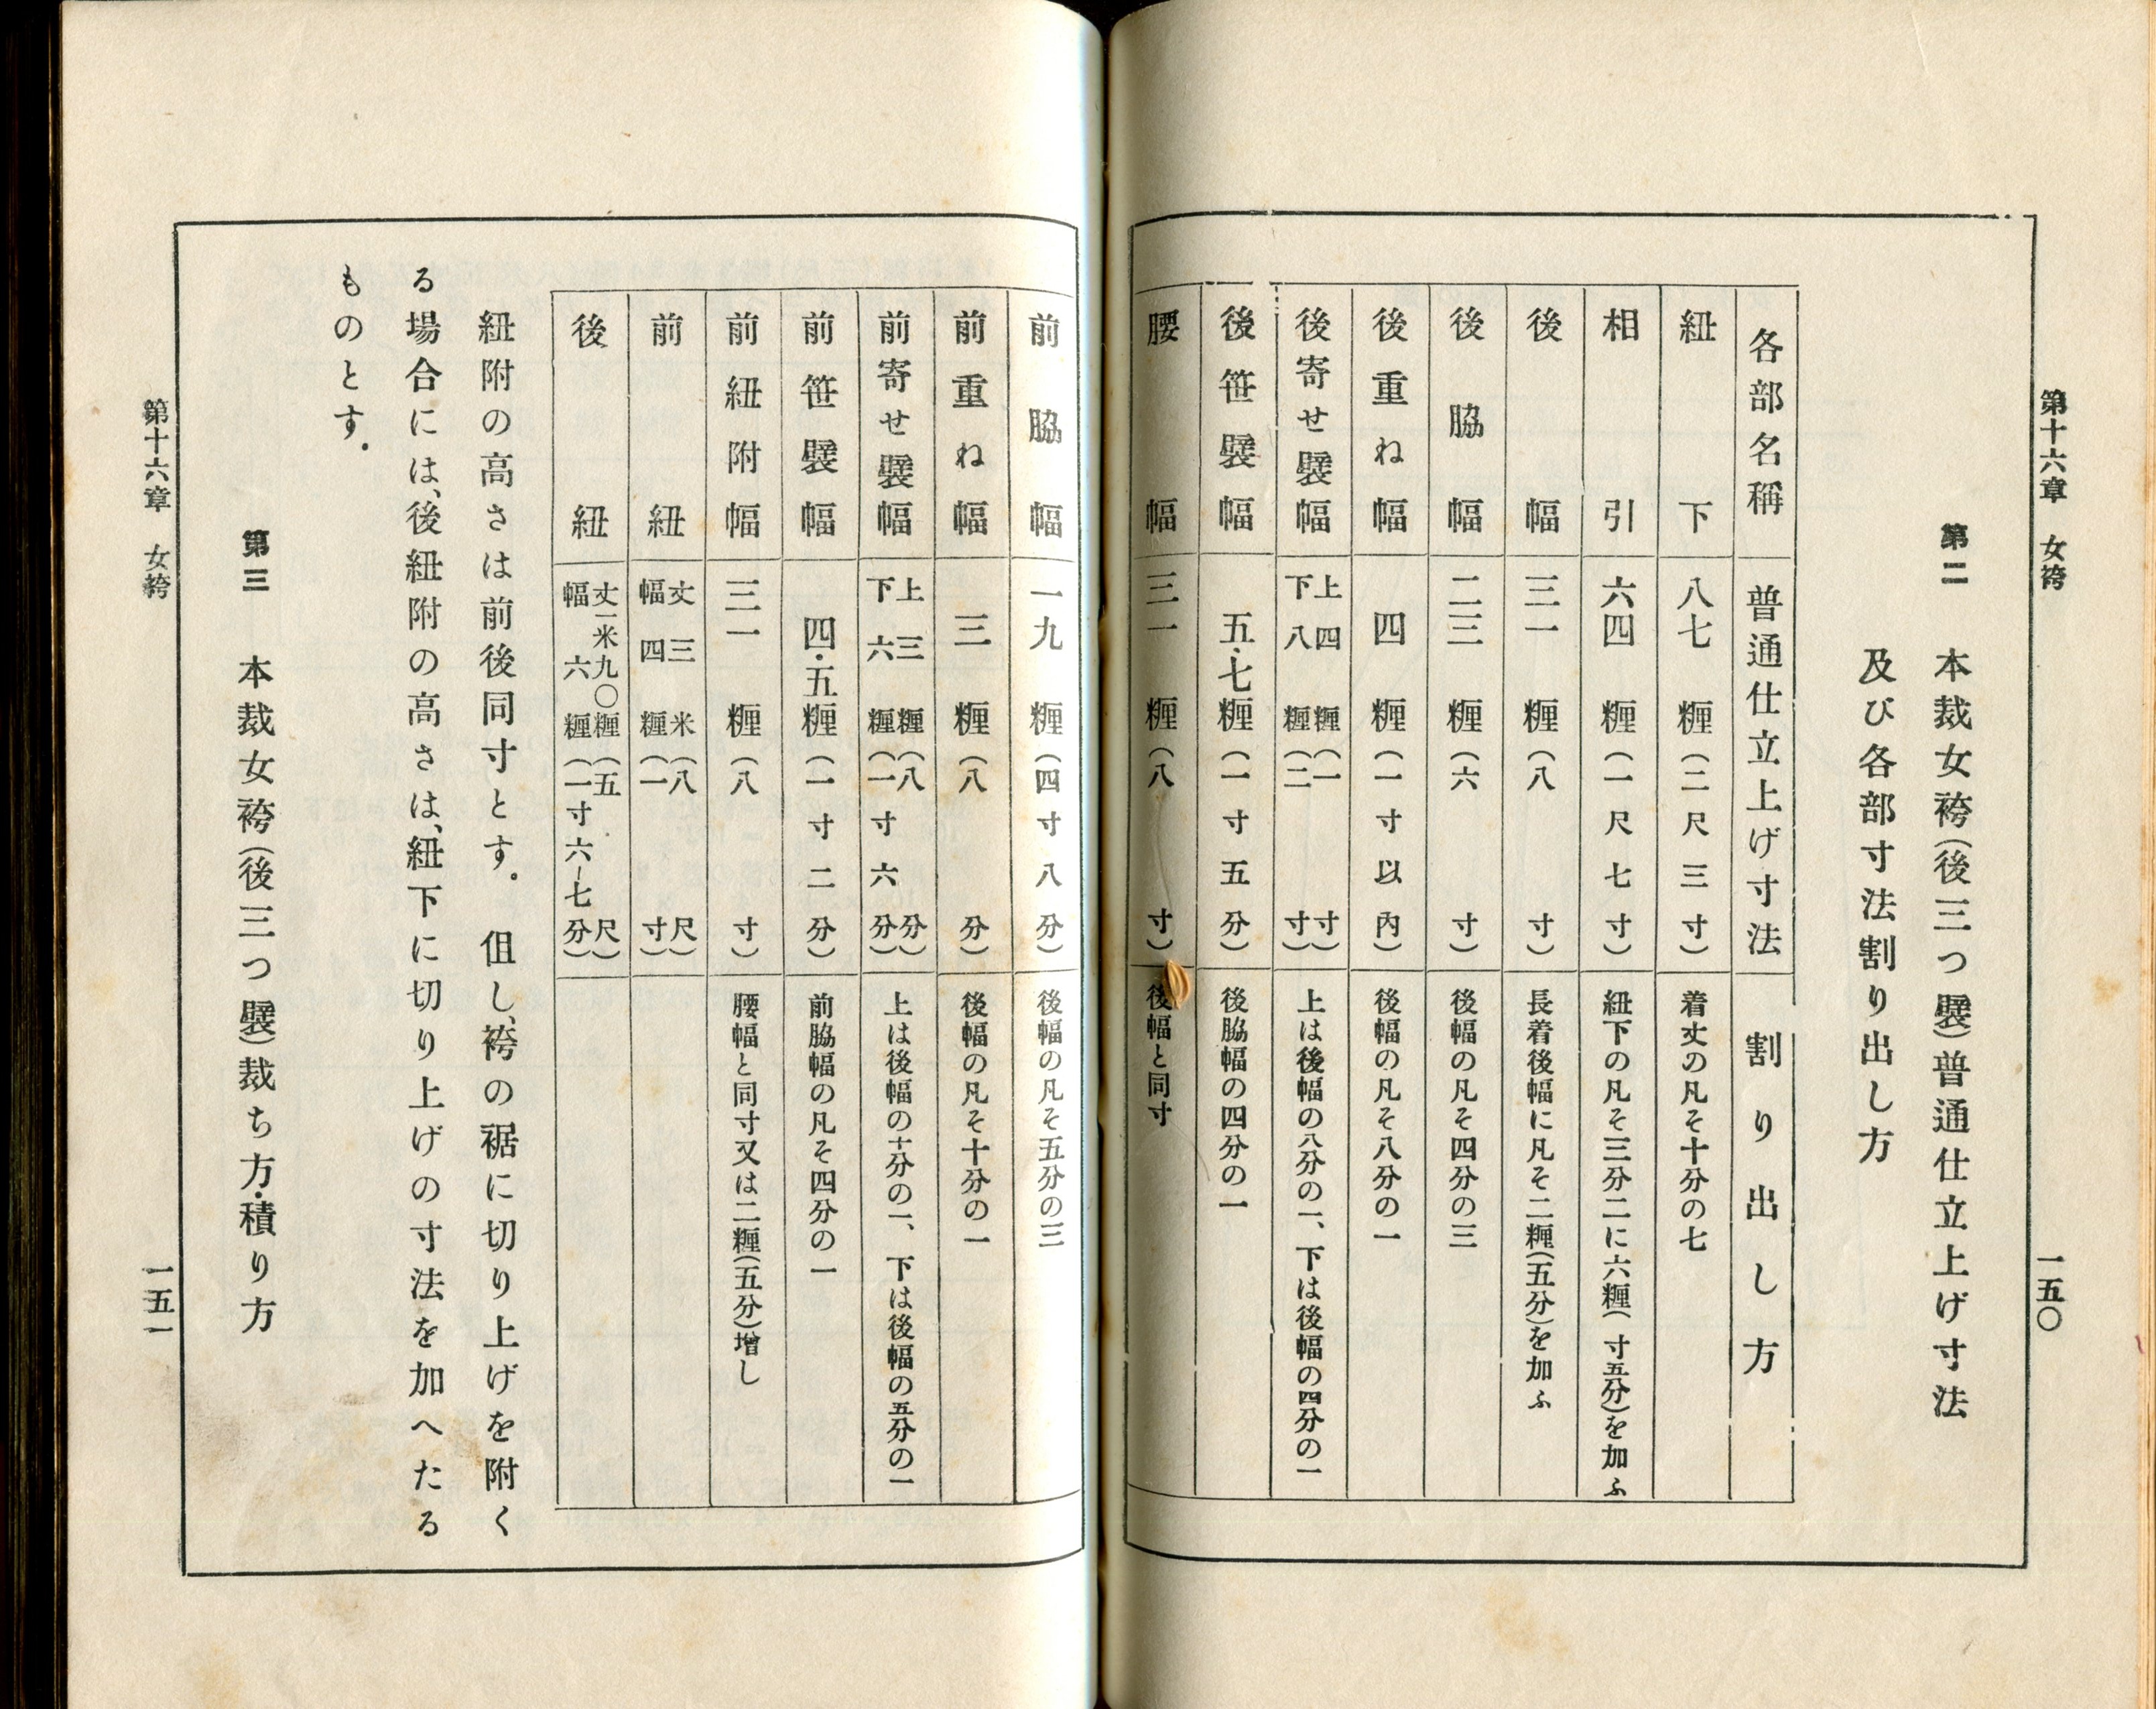 第十六章　女袴
一五〇
第二　本裁女袴(後三つ襞)普通仕立上げ寸法
及び各部寸法割り出し方
各部名稱　普通仕立上げ寸法　割り出し方
紐下　八七糎(二尺三寸)　着丈の凡そ十分の七
相引　六四糎(一尺七寸)　紐下の凡そ三分二に六糎(一寸五分)を加ふ
後幅　三一糎(八寸)　長着後幅に凡そ二糎(五分)を加ふ
後脇幅　二三糎(六寸)　後幅の凡そ四分の三
後重ね幅　四糎(一寸以内)　後幅の凡そ八分の一
後寄せ襞幅　上四糎(一寸)　下八糎(二寸)　上は後幅の八分の一、下は後幅の四分の一
後笹襞幅　五・七糎(一寸五分)　後脇幅の四分の一
腰幅　三一糎(八寸)　後幅と同寸
前脇幅　一九糎(四寸八分)　後幅の凡そ五分の三
前重ね幅　三糎(八分)　後幅の凡そ十分の一
前寄せ襞幅　上三糎(八分)　下六糎(一寸六分)　上は後幅の十分の一、下は後幅の五分の一
前笹襞幅　四・五糎(一寸二分)　前脇幅の凡そ四分の一
前紐附幅　三一糎(八寸)　腰幅と同寸又は二糎(五分)增し
前紐　丈三米(八尺)　幅四糎(一寸)
後紐　丈一米九〇糎(五尺)　幅六糎(一寸六―七分)
紐附の高さは前後同寸とす。但し、袴の裾に切り上げを附く
る場合には、後紐附の高さは、紐下に切り上げの寸法を加へたる
ものとす.
第三　本裁女袴(後三つ襞)裁ち方・積り方
第十六章　女袴
一五一